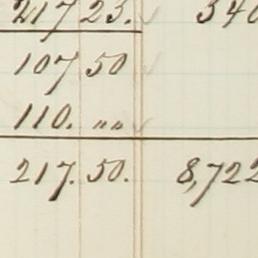 217 25. 340
107 50
110. „„
217. 50. 8,722